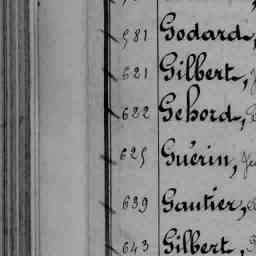 581 Godard,
621 Gilbert,
622 Gehord,
625 Guérin, Je
639 Gautier,
643 Gilbert,